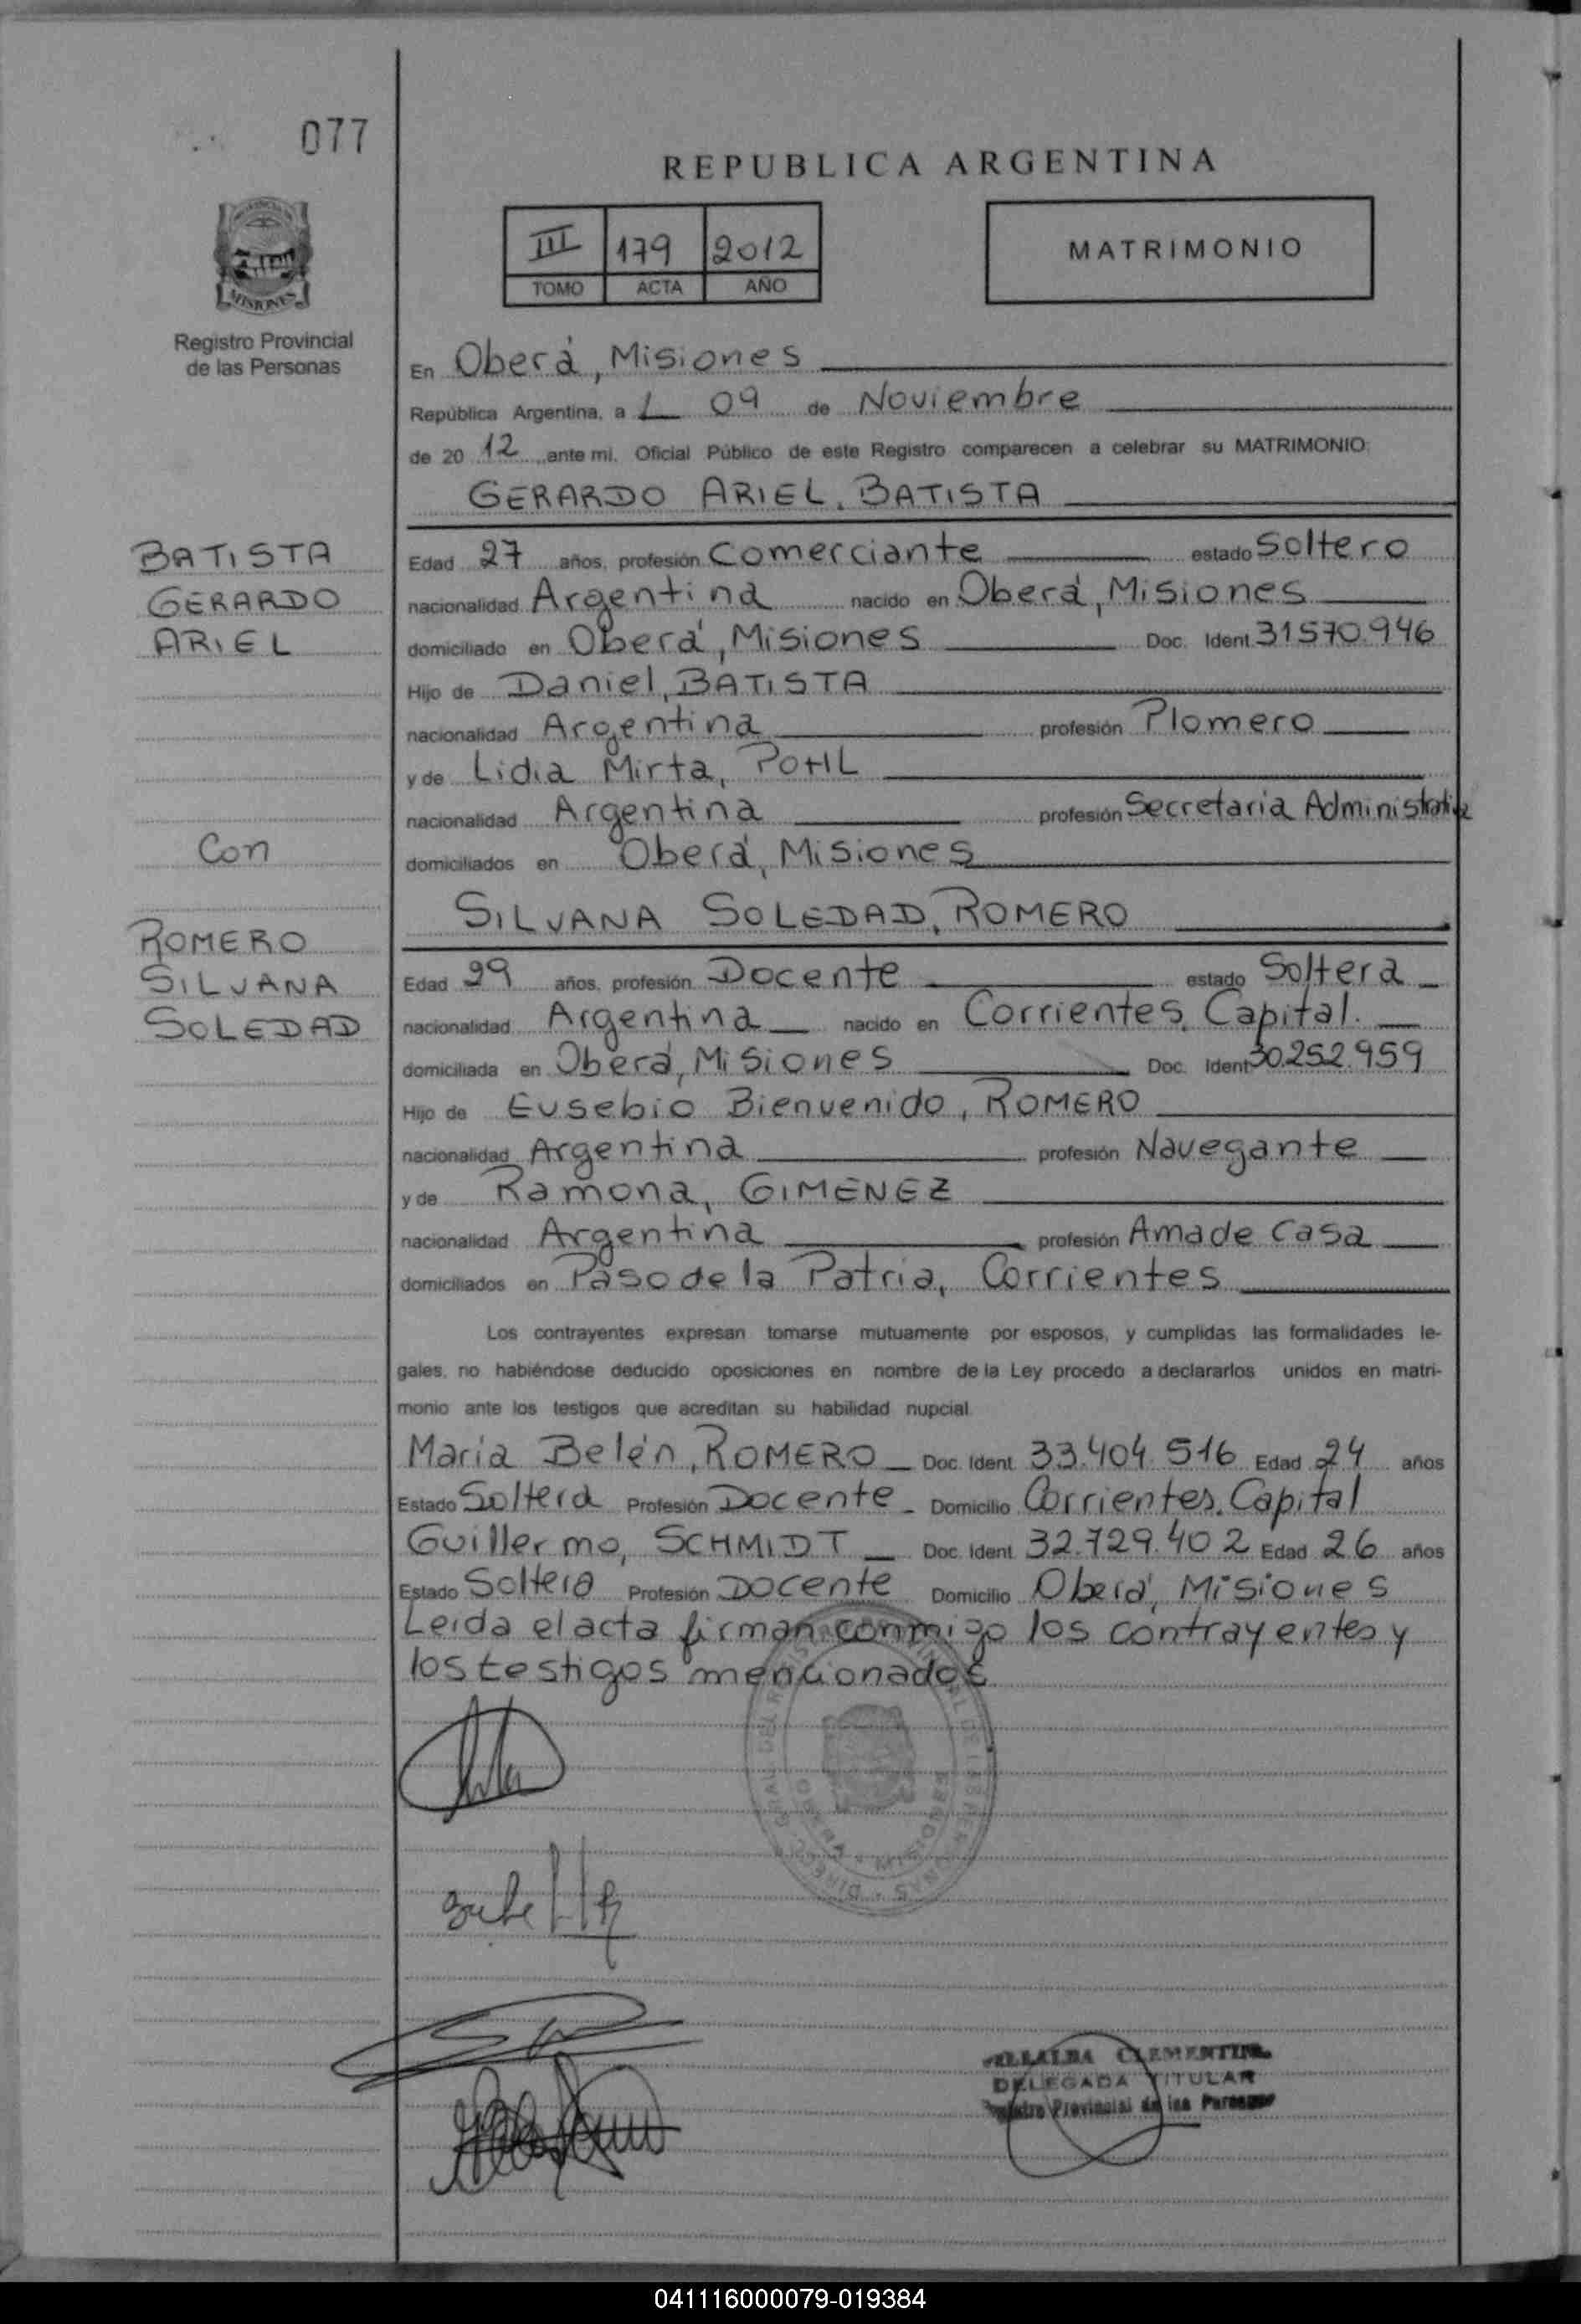 077
REPUBLICA ARGENTINA
III 179 2012
TOMO ACTA AÑO
MATRIMONIO
MISIONES
Registro Provincial
de las Personas
En Oberá, Misiones
República Argentina, a L 09 de Noviembre
de 20 12 ante mi, Oficial Público de este Registro comparecen a celebrar su MATRIMONIO:
GERARDO ARIEL, BATISTA
BATISTA
GERARDO
ARIEL
Edad 27 años, profesión Comerciante estado Soltero
nacionalidad Argentina nacido en Oberá, Misiones
domiciliado en Oberá, Misiones Doc. Ident. 31570.946
Hijo de Daniel, BATISTA
nacionalidad Argentina profesión Plomero
y de Lidia Mirta, POHL
nacionalidad Argentina profesión Secretaria Administrativa
Con
domiciliados en Oberá, Misiones
SILVANA SOLEDAD, ROMERO
ROMERO
SILVANA
SOLEDAD
Edad 29 años, profesión Docente estado Soltera
nacionalidad Argentina nacido en Corrientes, Capital.
domiciliada en Oberá, Misiones Doc. Ident 30.252.959
Hijo de Eusebio Bienvenido, ROMERO
nacionalidad Argentina profesión Navegante
y de Ramona, GIMENEZ
nacionalidad Argentina profesión Ama de Casa
domiciliados en Paso de la Patria, Corrientes
Los contrayentes expresan tomarse mutuamente por esposos, y cumplidas las formalidades le-
gales, no habiéndose deducido oposiciones en nombre de la Ley procedo a declararlos unidos en matri-
monio ante los testigos que acreditan su habilidad nupcial.
María Belén, ROMERO Doc. Ident. 33.404.516 Edad 24 años
Estado Soltera Profesión Docente Domicilio Corrientes, Capital
Guillermo, SCHMIDT Doc. Ident. 32.729.402 Edad 26 años
Estado Soltero Profesión Docente Domicilio Oberá, Misiones
Leida el acta firman conmigo los contrayentes y
los testigos mencionados
VILLALBA CLEMENTINA
DELEGADA TITULAR
Registro Provincial de las Personas
041116000079-019384